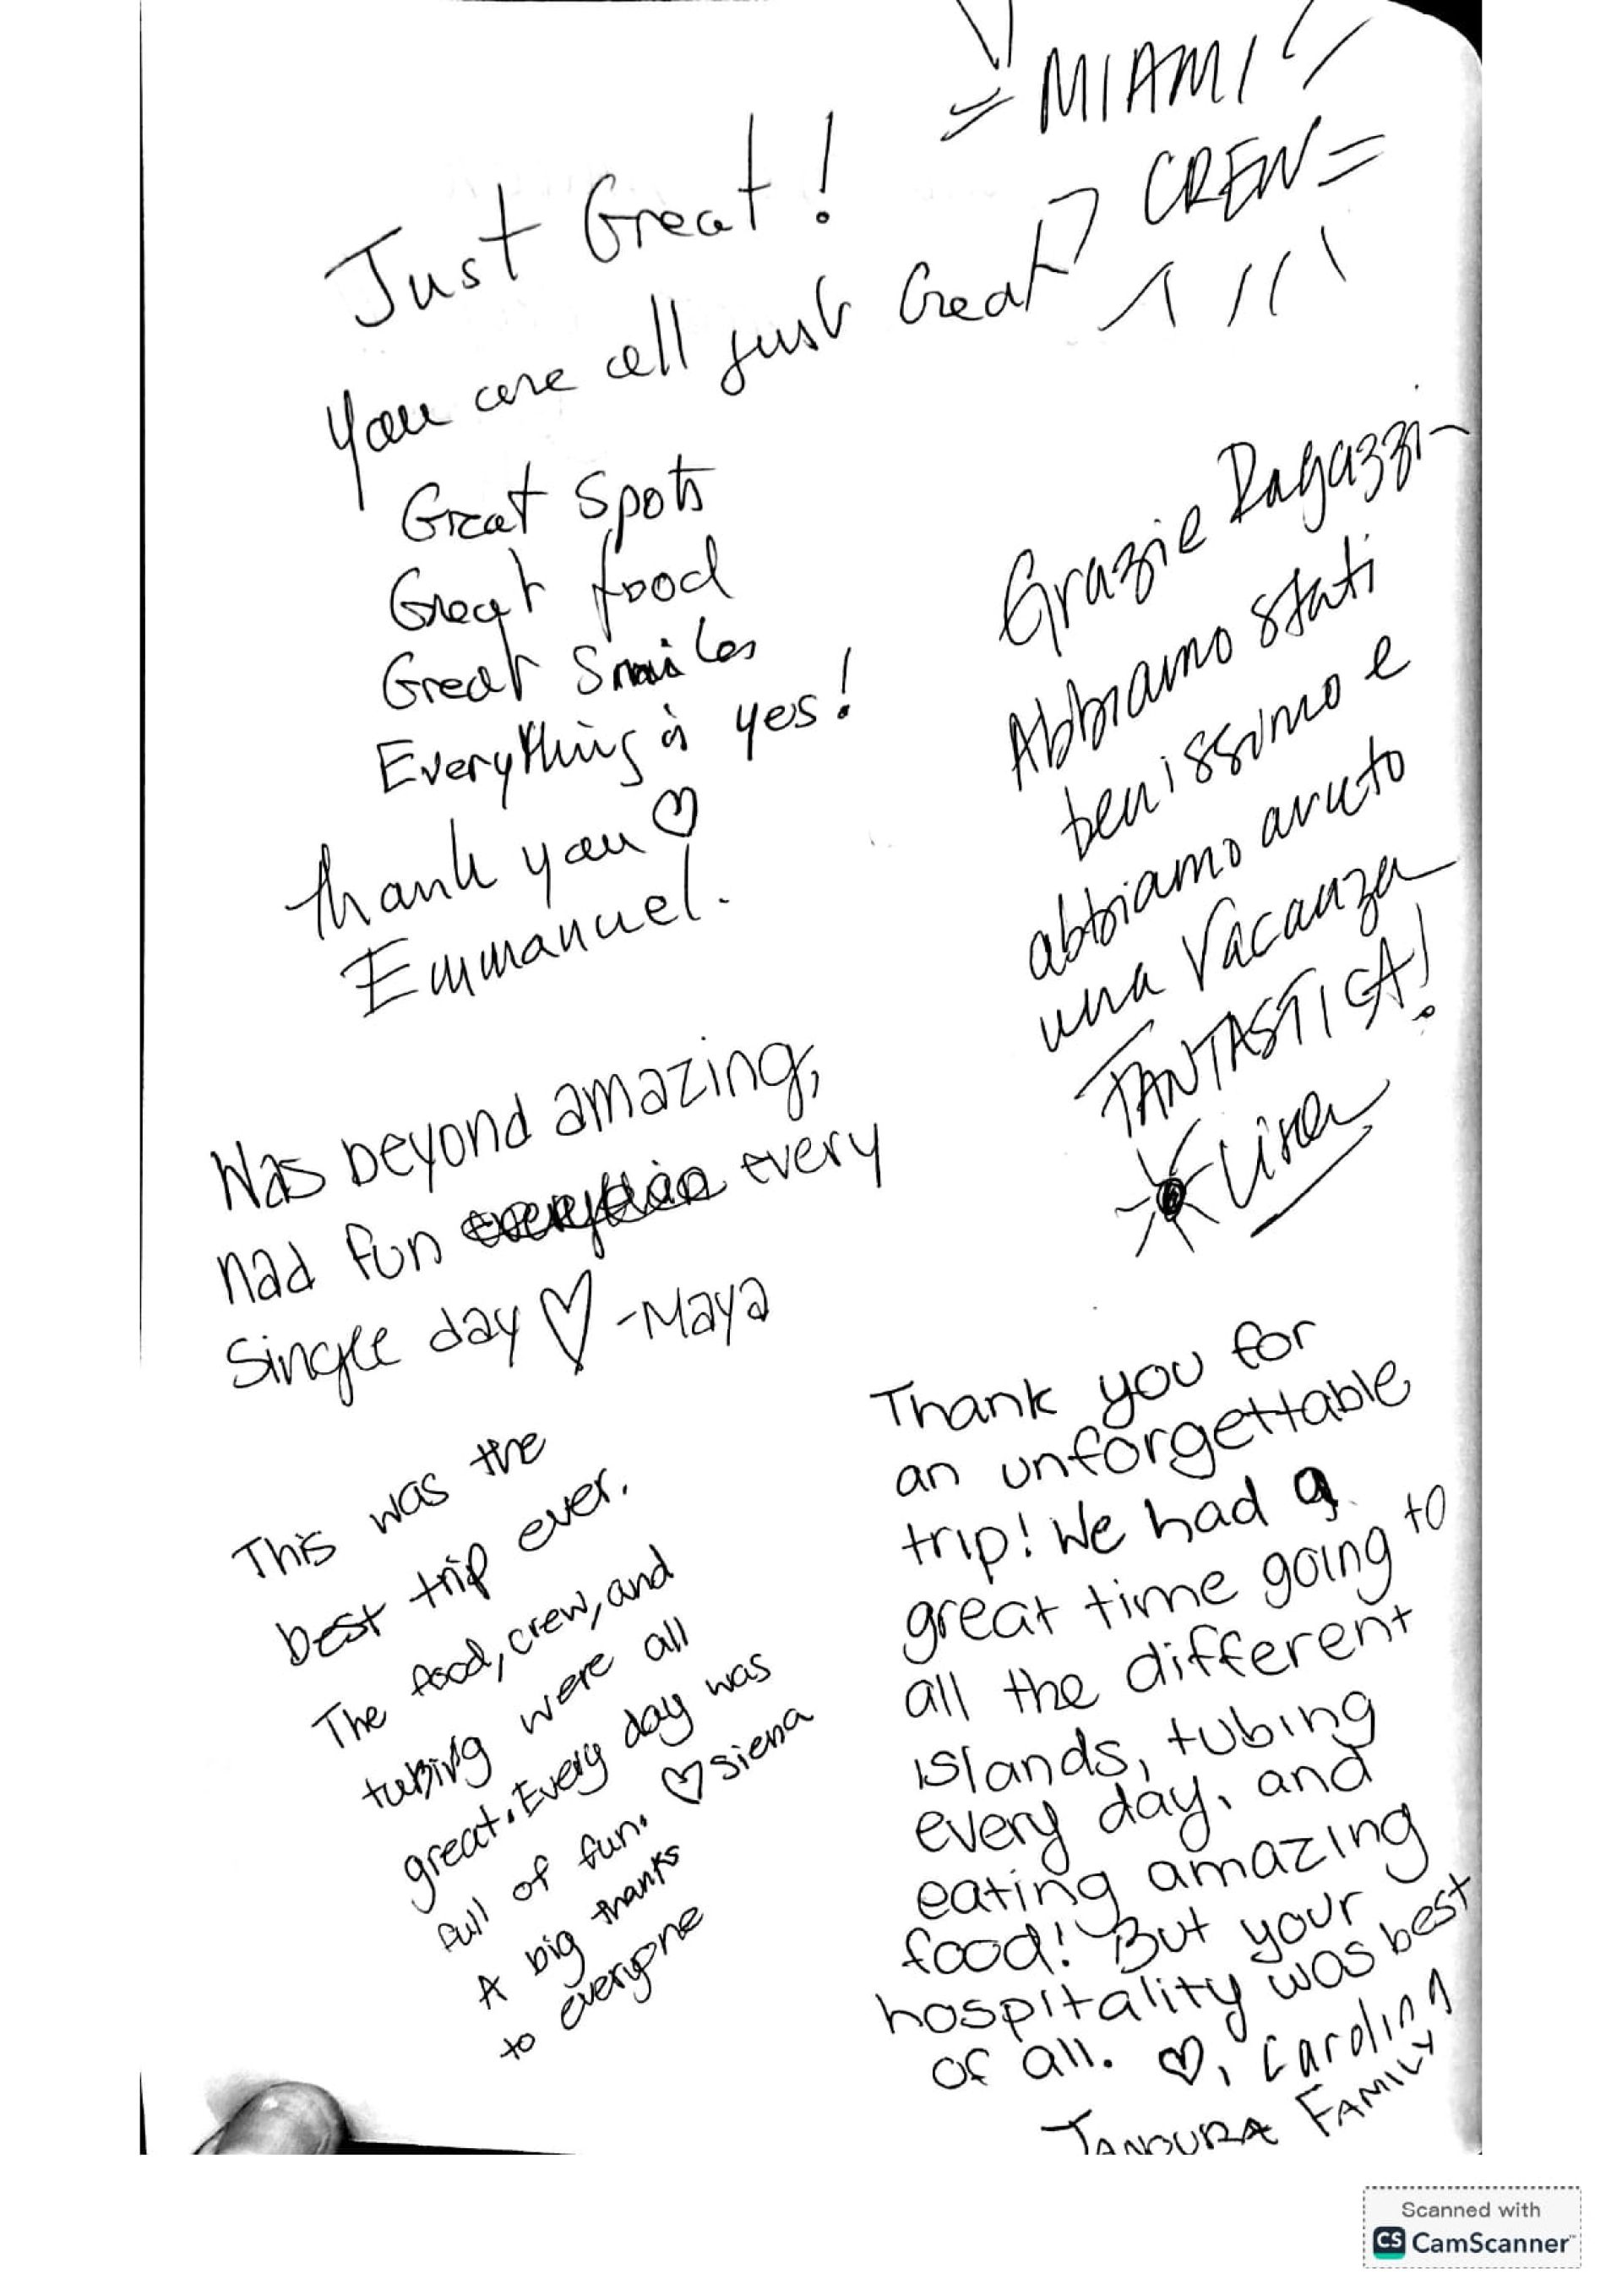 MIAMI
CREW
Just Great!
You are all just Great
Great Spots
Great food
Great Smiles
Everything is yes!
thank you ♡
Emmanuel.
Grazie Ragazzi -
Abbiamo stati
benissimo e
abbiamo avuto
una Vacanza
FANTASTICA!
Lisa
Was beyond amazing,
had fun every
single day ♡ -Maya
This was the
best trip ever.
The food, crew, and
tubing were all
great. Every day was
full of fun. ♡ Siena
A big thanks
to everyone
Thank you for
an unforgettable
trip! We had a
great time going to
all the different
islands, tubing
every day, and
eating amazing
food! But your
hospitality was best
of all. ♡, Carolina
TANOURA FAMILY
Scanned with
CS CamScanner